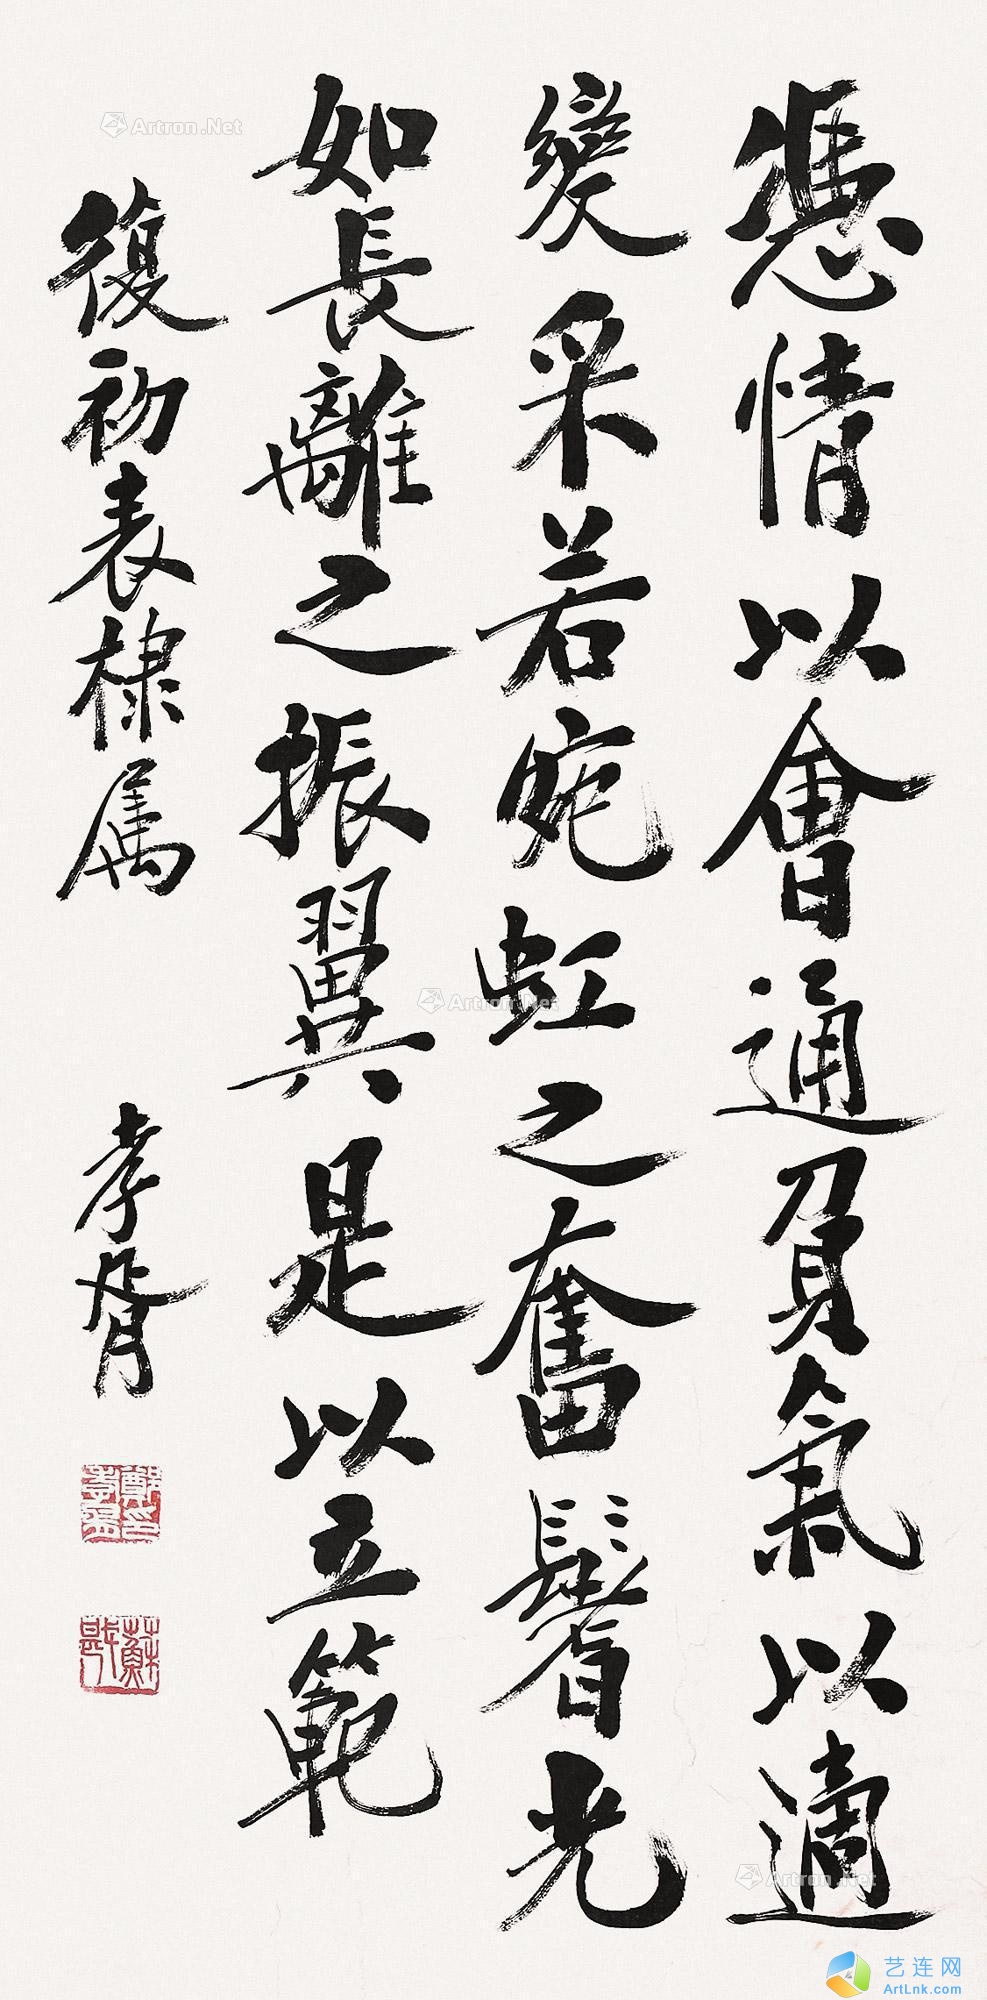 憑情以會通負氣以適
變采若宛虹之奮鬐光
如長離之振翼是以立範
復初表棣屬
孝胥
鄭孝胥印
蘇戡
Artron.Net
Artron.Net
Artron.Net
艺连网
ArtLnk.com